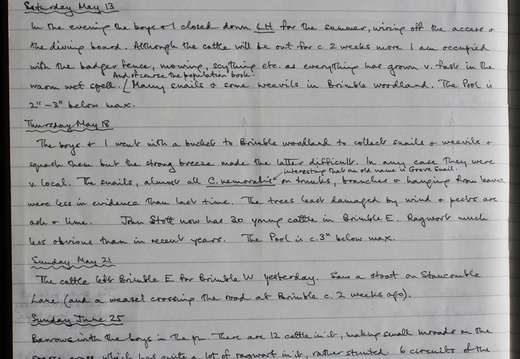 Saturday May 13
In the evening the boys & I closed down LH for the summer, wiring off the access &
the diving board. Although the cattle will be out for c 2 weeks more I am occupied
with the badger fence, mowing, scything etc. as everything has grown v. fast in the
And of course the population book!
warm wet spell. / Many snails & some weevils in Brimble woodland. The Pool is
2"-3" below max.
Thursday May 18
The boys & I went with a bucket to Brimble woodland to collect snails & weevils &
squash them but the strong breeze made the latter difficult. In any case they were
interesting that an old name is Grove Snail.
v. local. The snails, almost all C. nemoralis on trunks, branches & hanging from leaves,
were less in evidence than last time. The trees least damaged by wind & pests are
ash & lime. John Stott now has 30 young cattle in Brimble E. Ragwort much
less obvious than in recent years. The Pool is c. 3" below max.
Sunday May 21
The cattle left Brimble E for Brimble W yesterday. Saw a stoat on Stancombe
Lane (and a weasel crossing the road at Brimble c. 2 weeks ago).
Sunday June 25
with the boys in the pm. There are 12 cattle in it, making small inroads on the
grass which has quite a lot of ragwort in it, rather stunted. 6 circuits of the